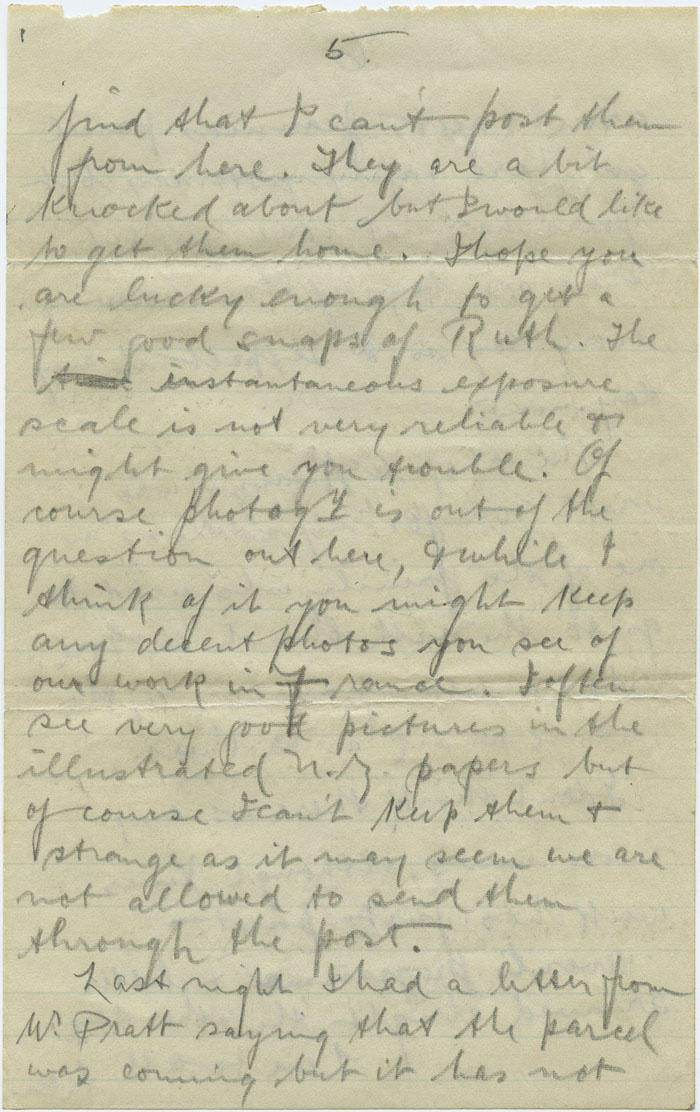 5.
find that I can't post them
from here. They are a bit
knocked about but I would like
to get them home. I hope you
are lucky enough to get a
few good snaps of Ruth. The
instantaneous exposure
scale is not very reliable &
might give you trouble. Of
course photogy is out of the
question out here, & while I
think of it you might keep
any decent photos you see of
our work in France. I often
see very good pictures in the
illustrated N.Z. papers but
of course I can't keep them &
strange as it may seem we are
not allowed to send them
through the post.
Last night I had a letter from
Mr Pratt saying that the parcel
was coming but it has not